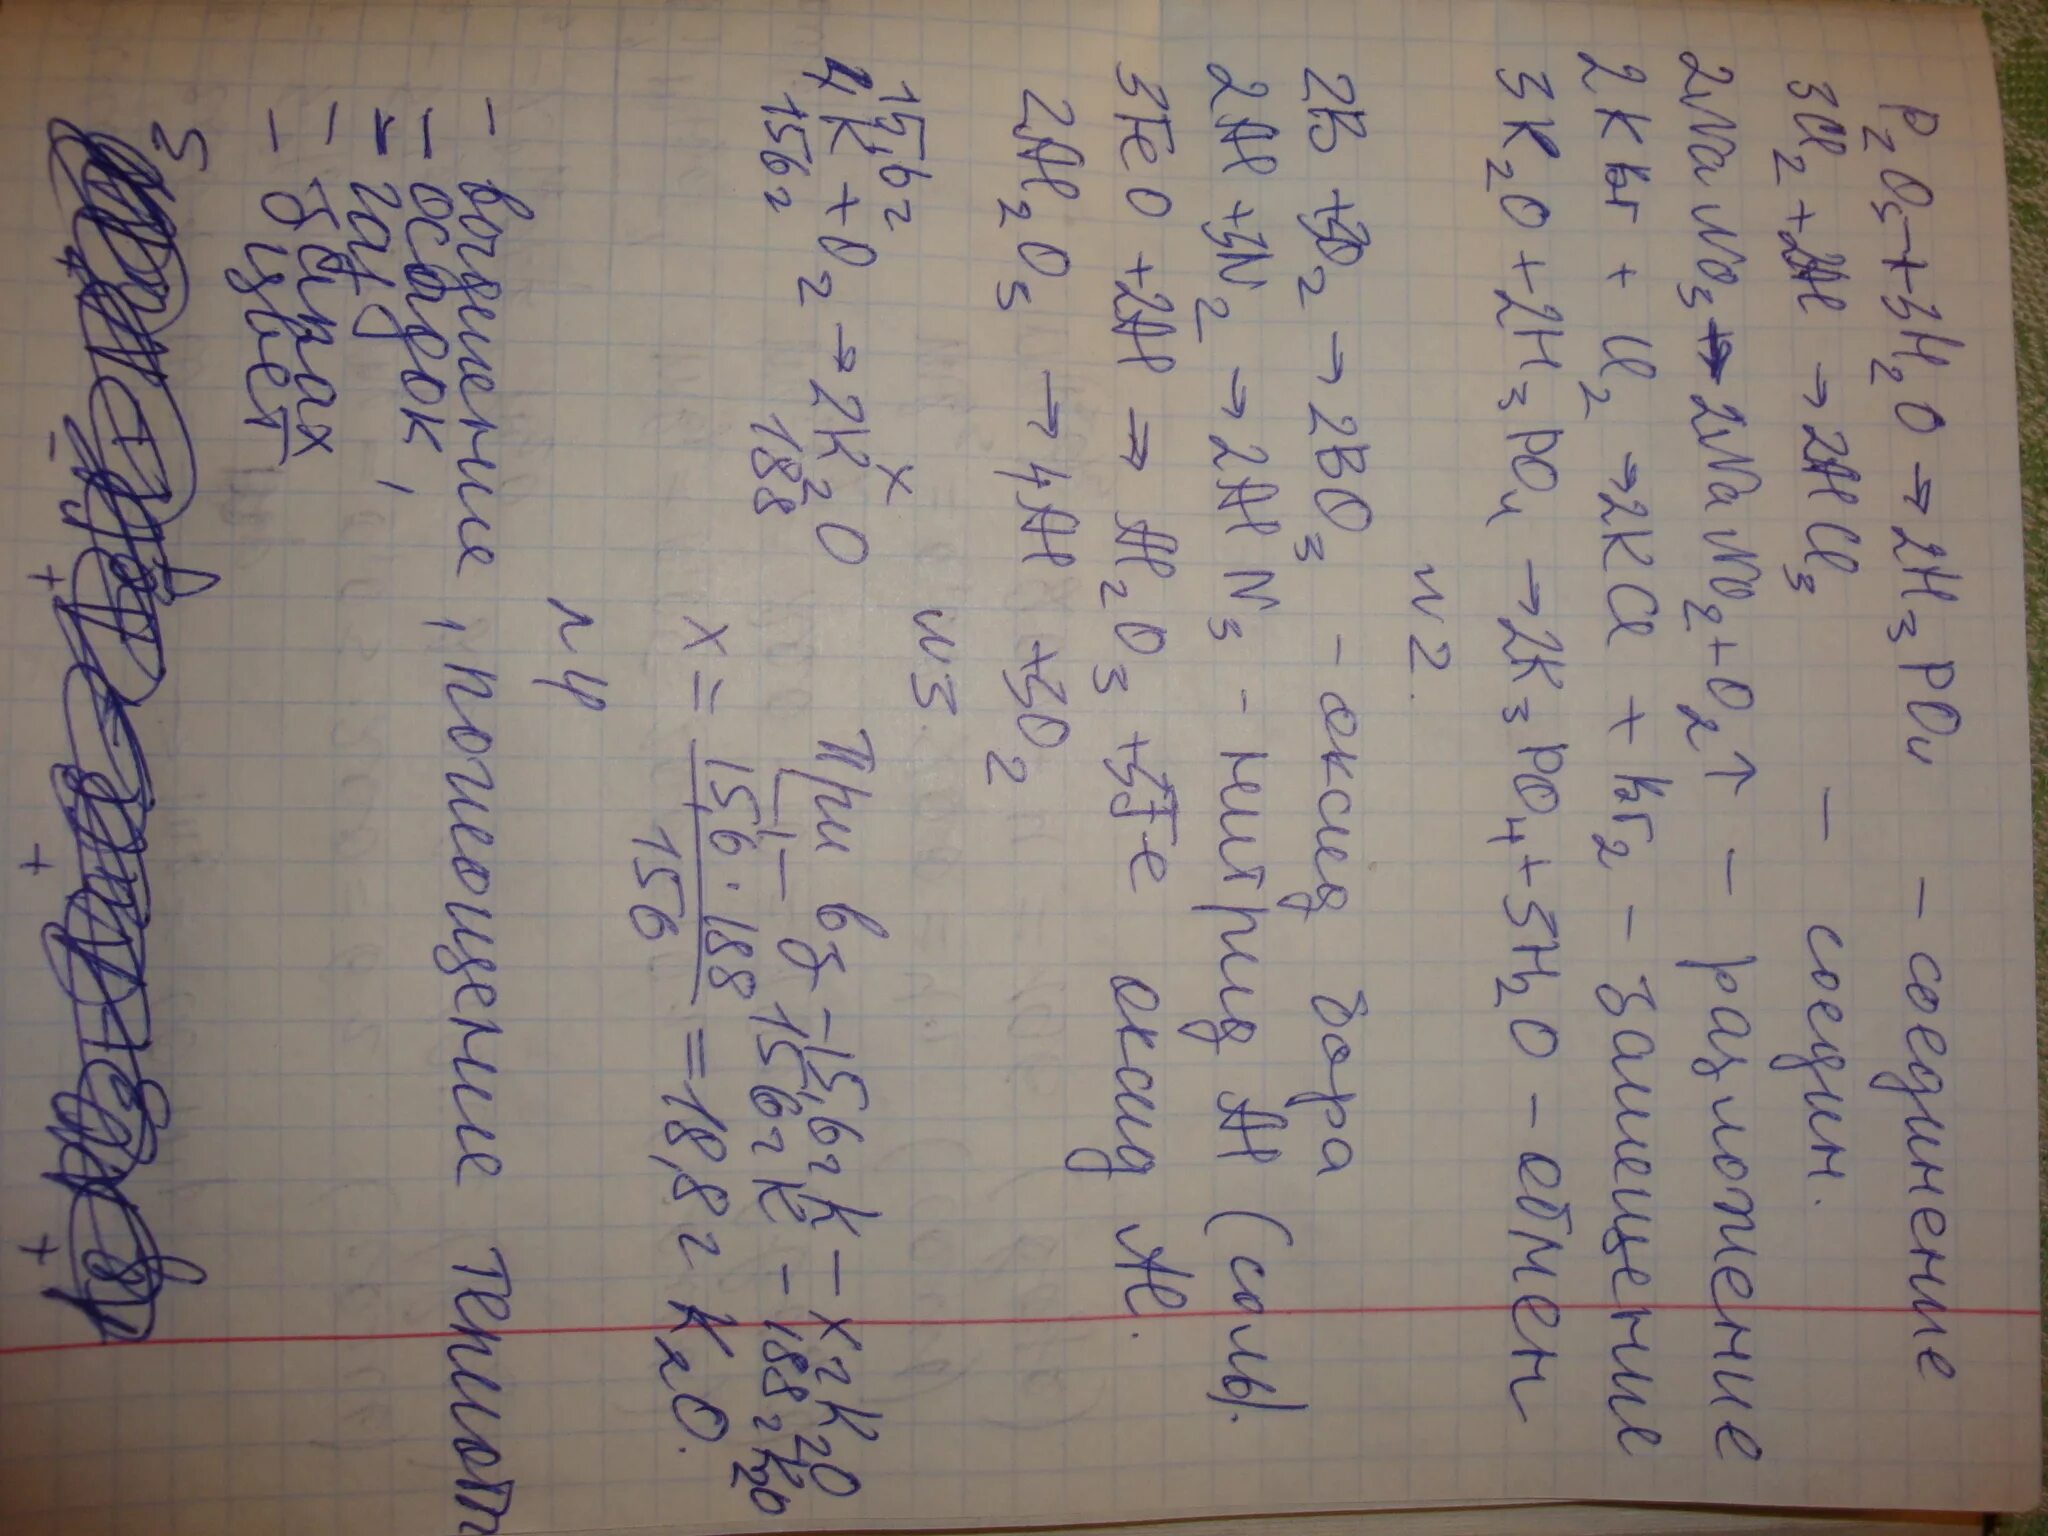 P₂O₅ + 3H₂O → 2H₃PO₄ – соединение
3Cl₂ + 2Al → 2AlCl₃ – соедин.
2NaNO₃ → 2NaNO₂ + O₂↑ – разложение
2KBr + Cl₂ → 2KCl + Br₂ – замещение
3K₂O + 2H₃PO₄ → 2K₃PO₄ + 3H₂O – обмен
№2.
2B + 3O₂ → 2BO₃ – оксид бора
2Al + 3N₂ → 2AlN₃ – нитрид Al (соль).
3FeO + 2Al → Al₂O₃ + 3Fe оксид Al.
2Al₂O₃ → 4Al + 3O₂
№3.
15,6г x
4K + O₂ → 2K₂O При вз – 15,6г K – xг K₂O
156г 188 – 156г K – 188г K₂O
x = 15,6 · 188 / 156 = 18,8г K₂O.
№4
– выделение, поглощение теплот
– осадок,
– газ,
– запах
– цвет
5